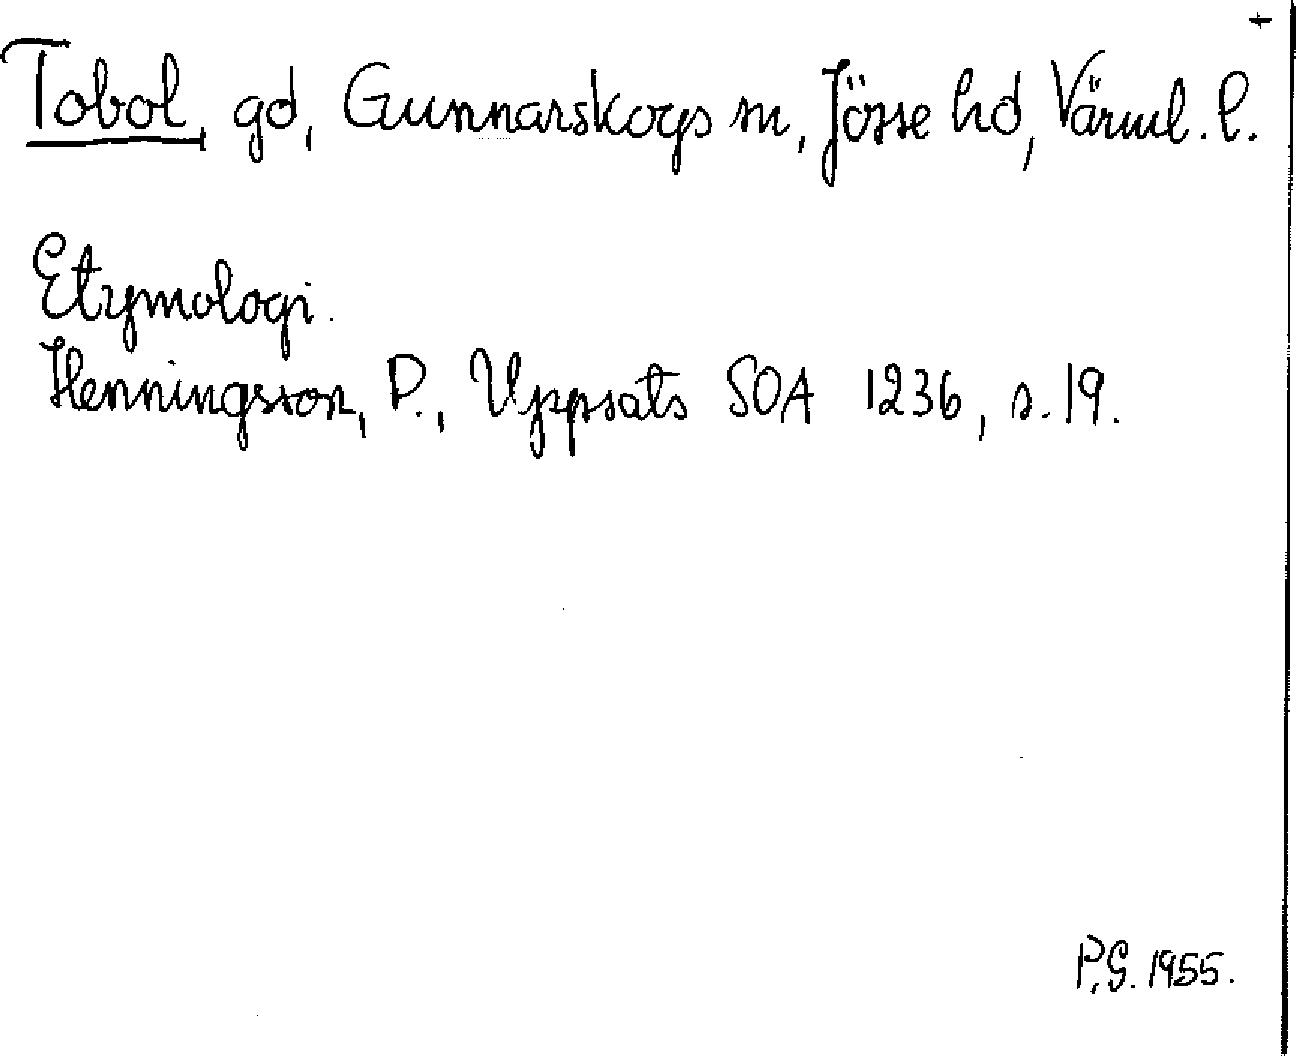 Tobol, gd, Gunnarskogs sn, Jösse hd, Värml. l.
Etymologi.
Henningsson, P., Uppsats SOA 1236, s. 19.
P.G. 1955.